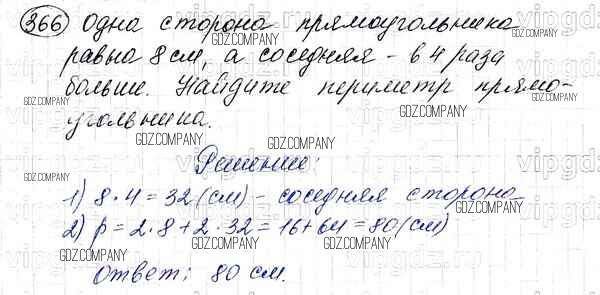 366 Одна сторона прямоугольника
равна 8 см, а соседняя - в 4 раза
больше. Найдите периметр прямо-
угольника.
Решение:
1) 8 · 4 = 32 (см) - соседняя сторона
2) P = 2 · 8 + 2 · 32 = 16 + 64 = 80 (см)
Ответ: 80 см.